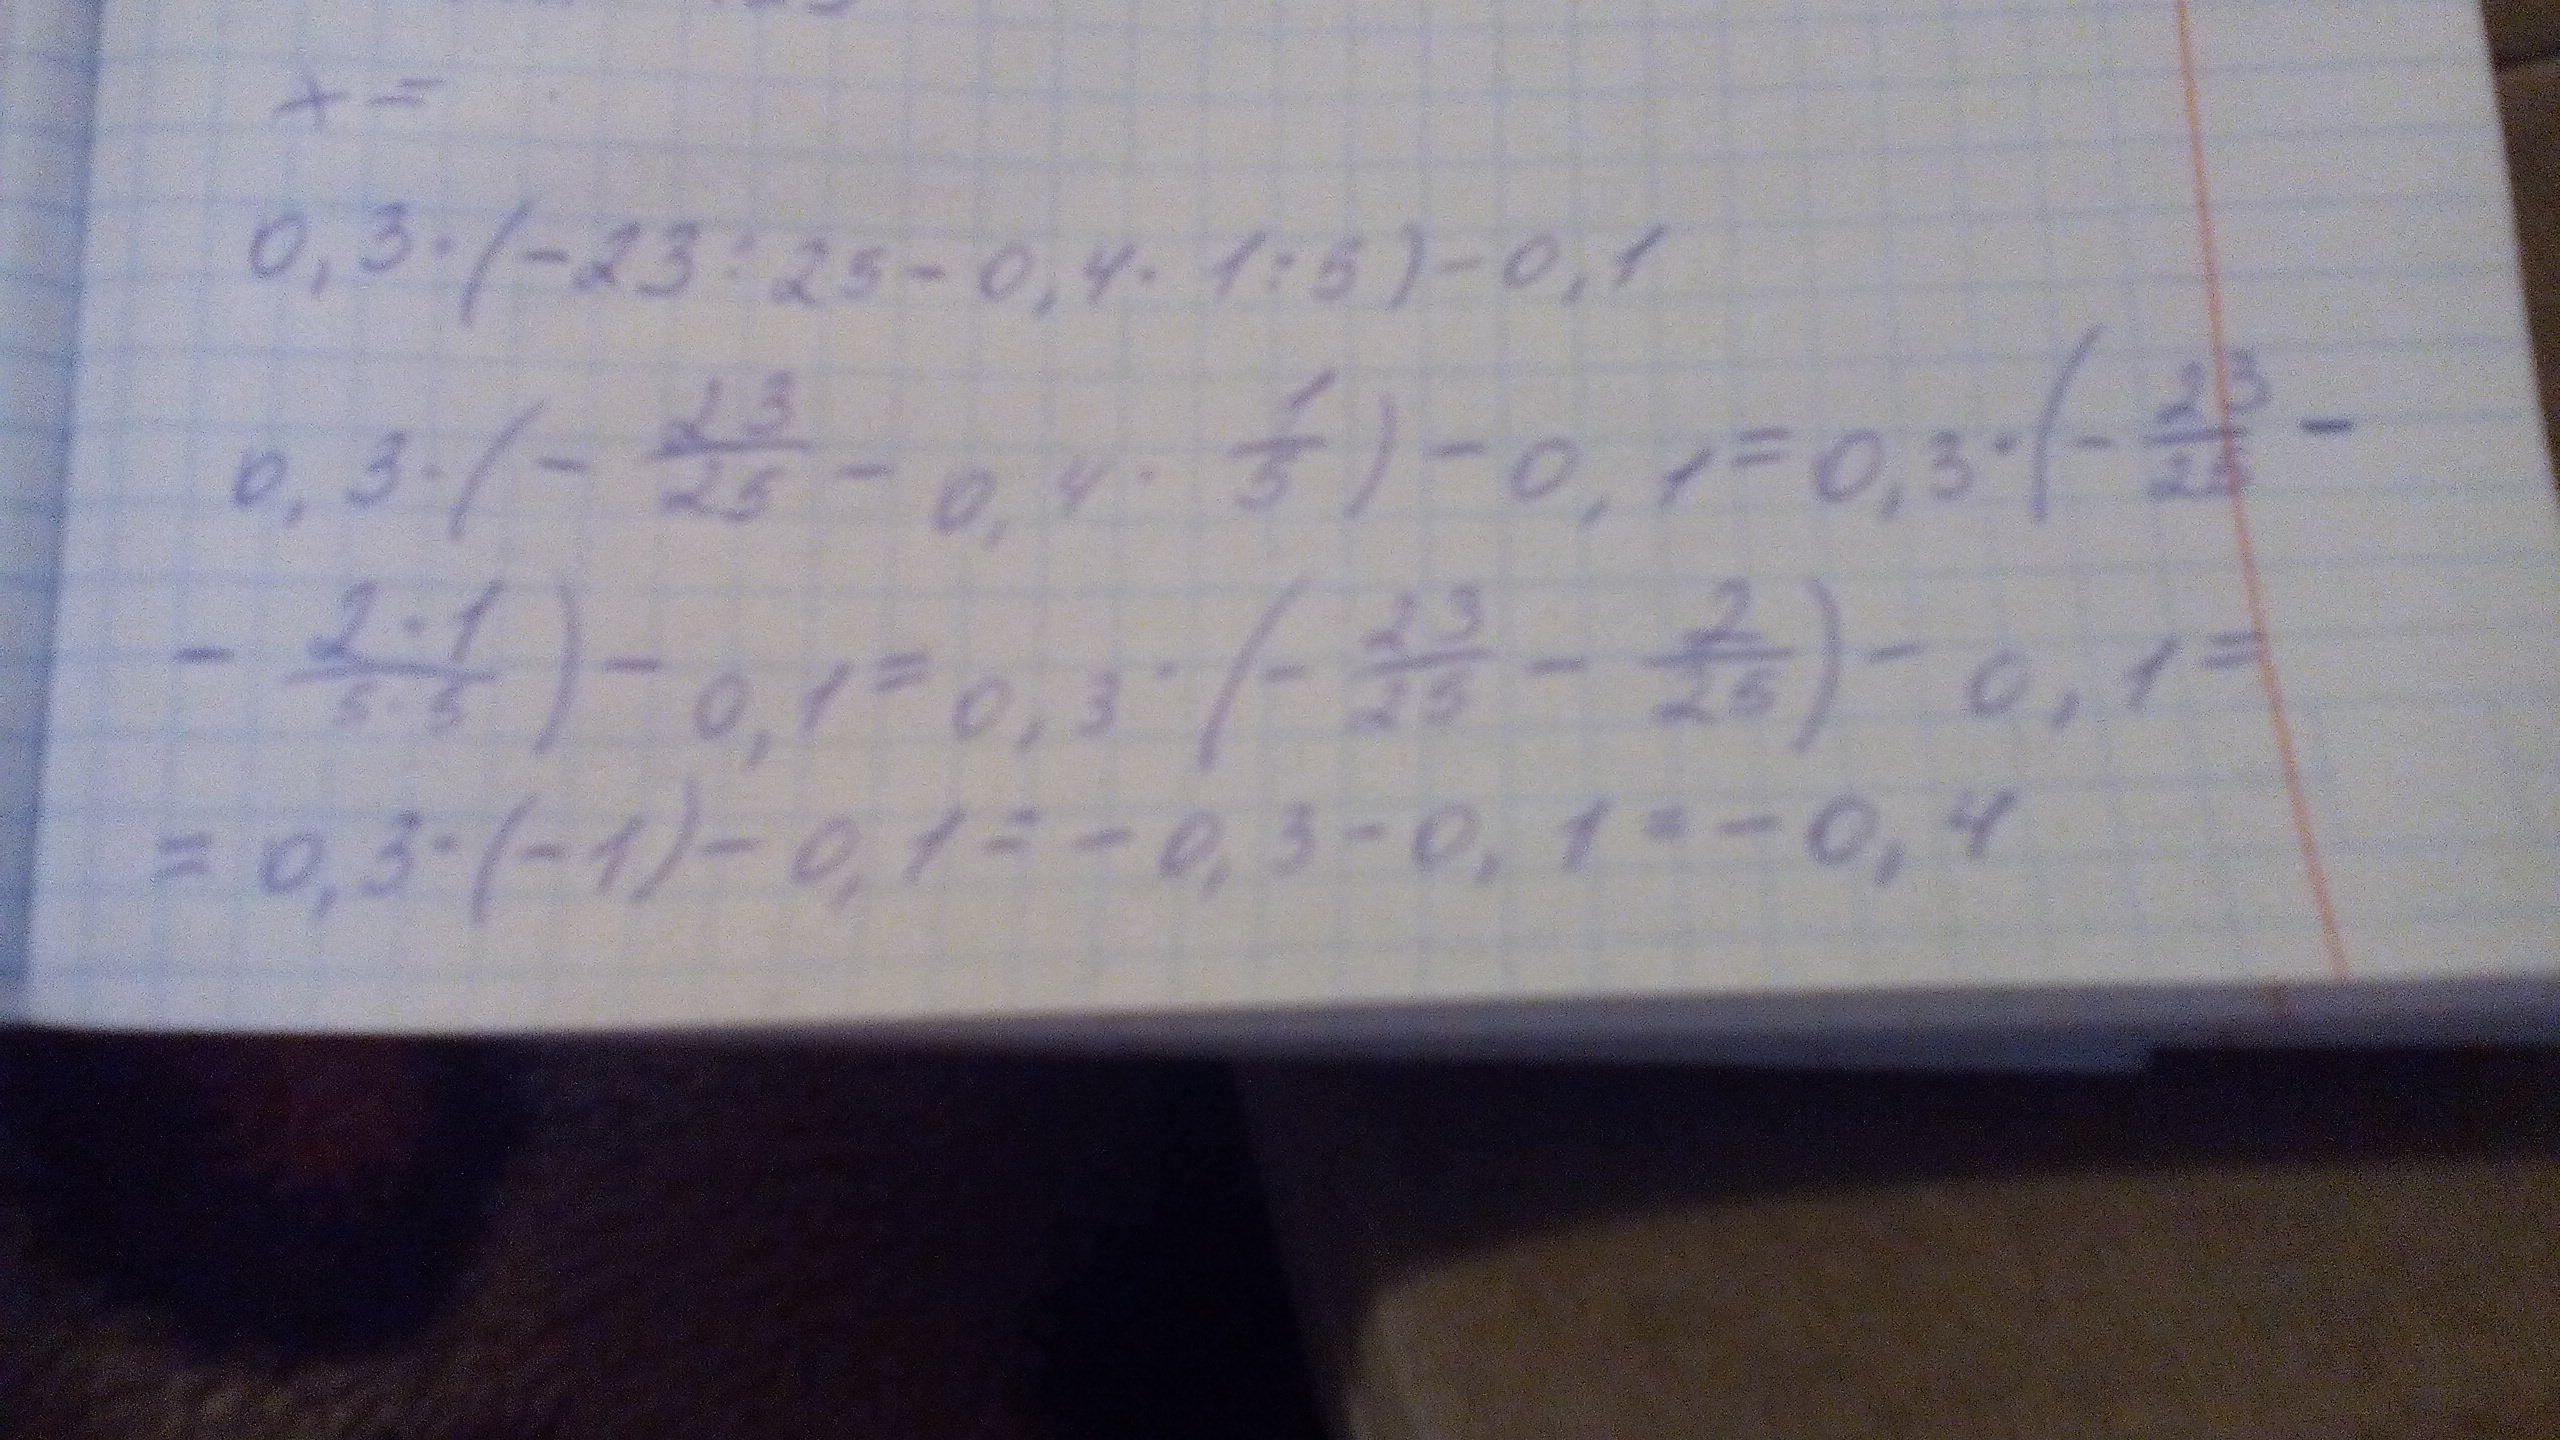 x =
0,3·(-23:25-0,4·1:5)-0,1
0,3·(-23/25-0,4·1/5)-0,1=0,3·(-23/25-
-2·1/5·5)-0,1=0,3·(-23/25-2/25)-0,1=
=0,3·(-1)-0,1=-0,3-0,1=-0,4